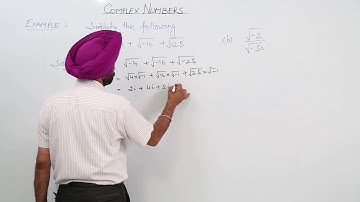 COMPLEX NUMBERS
EXAMPLE: Simplify the following
+ √-16 + √-25 (b) √-2 / √-50
√-4 + √-16 + √-25
= √4×√-1 + √16×√-1 + √25×√-1
= 2i + 4i + 5